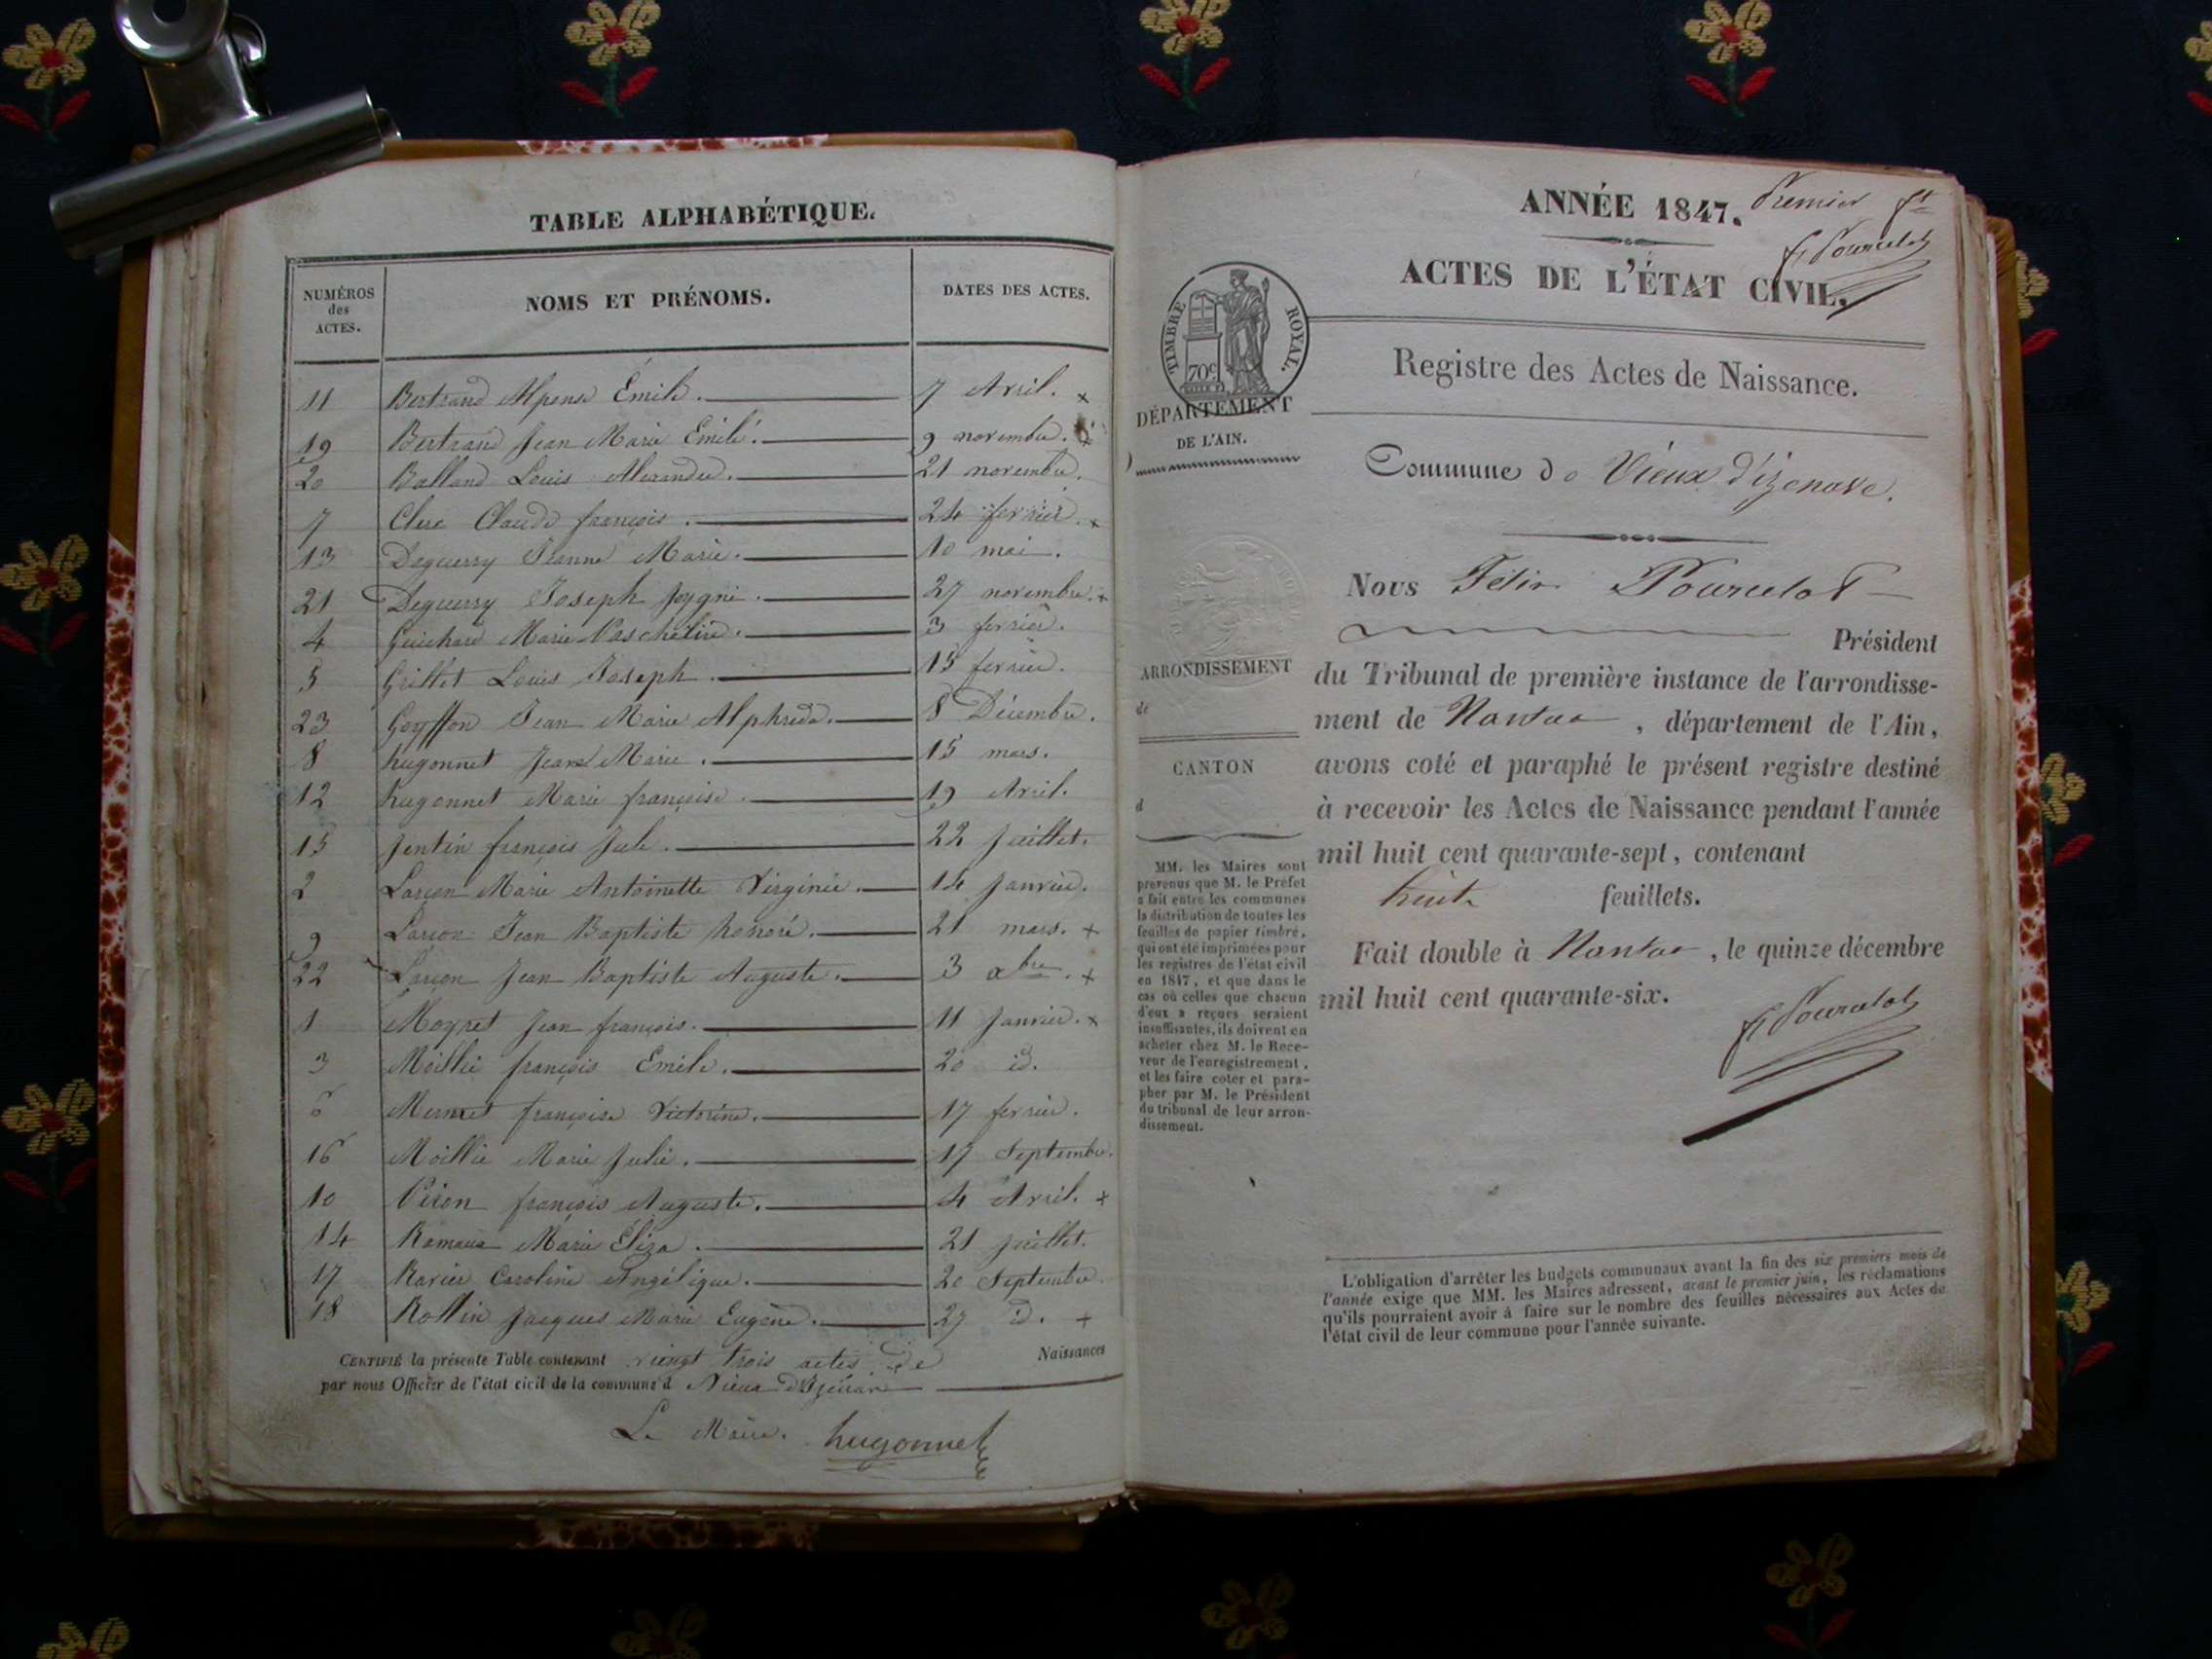 TABLE ALPHABÉTIQUE.
NUMÉROS des ACTES. NOMS ET PRÉNOMS. DATES DES ACTES.
11 Bertrand Alponse Émile. 7 Avril. x
19 Bertrand Jean Marie Emile. 9 novembre. x
20 Balland Louis Alexandre. 21 novembre.
7 Clerc Claude françois. 24 fevrier. x
13 Deguerry Jeanne Marie. 10 mai.
21 Deguerry Joseph 27 novembre. x
4 Guichard Marie 3 fevrier.
5 Grillet Louis Joseph. 15 fevrier.
23 Goyffon Jean Marie Alphrede. 8 Décembre.
8 hugonnet Jean Marie. 15 mars.
12 hugonnet Marie françoise. 19 Avril.
15 Jentin françois Jule. 22 Juillet.
2 Larçon Marie Antoinette Virginie. 14 Janvier.
9 Larçon Jean Baptiste honoré. 21 mars. +
22 Larçon Jean Baptiste Auguste. 3 xbre. +
1 Moyret Jean françois. 11 Janvier. x
3 Moillie françois Emile. 20 id.
6 Mermet françoise Victorine. 17 fevrier.
16 Moillie Marie Julie. 17 Septembre.
10 Piron françois Auguste. 4 Avril. +
14 Ramaux Marie Éliza. 21 Juillet.
17 Ravier Caroline Angélique. 20 Septembre.
18 Rollin Jacques Marie Eugène. 27 id. +
CERTIFIÉ la présente Table contenant vingt trois actes de Naissances
par nous Officier de l'état civil de la commune d Vieux
Le Maire. hugonnet
ANNÉE 1847. Premier ft
F Pourcelot
ACTES DE L'ÉTAT CIVIL.
TIMBRE ROYAL.
70c
Registre des Actes de Naissance.
DÉPARTEMENT
DE L'AIN.
Commune de Vieux d'izenave.
Nous Félix Pourcelot
Président
du Tribunal de première instance de l'arrondisse-
ment de Nantua, département de l'Ain,
avons coté et paraphé le présent registre destiné
à recevoir les Actes de Naissance pendant l'année
mil huit cent quarante-sept, contenant
huit feuillets.
Fait double à Nantua, le quinze décembre
mil huit cent quarante-six.
F Pourcelot
ARRONDISSEMENT
de
CANTON
d
MM. les Maires sont
prévenus que M. le Préfet
a fait entre les communes
la distribution de toutes les
feuilles de papier timbré,
qui ont été imprimées pour
les registres de l'état civil
en 1847, et que dans le
cas où celles que chacun
d'eux a reçues seraient
insuffisantes, ils doivent en
acheter chez M. le Rece-
veur de l'enregistrement,
et les faire coter et para-
pher par M. le Président
du tribunal de leur arron-
dissement.
L'obligation d'arrêter les budgets communaux avant la fin des six premiers mois de
l'année exige que MM. les Maires adressent, avant le premier juin, les réclamations
qu'ils pourraient avoir à faire sur le nombre des feuilles nécessaires aux Actes de
l'état civil de leur commune pour l'année suivante.